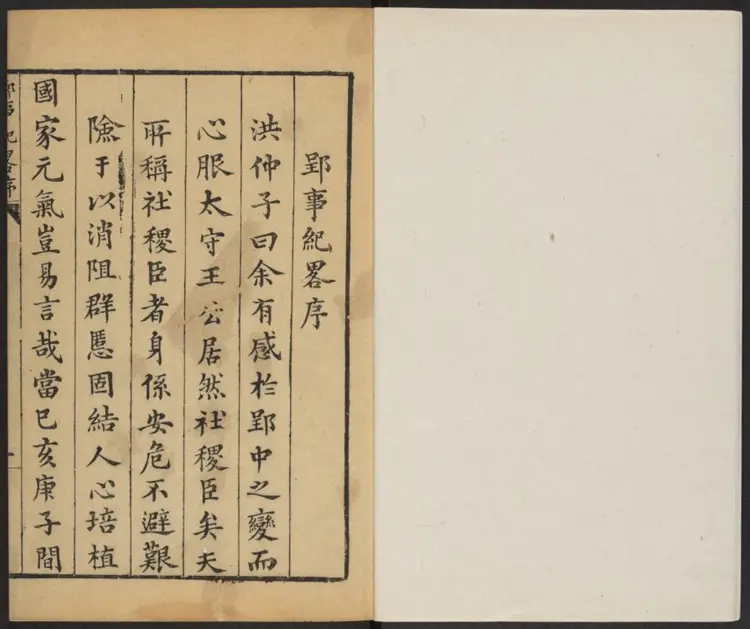 郢事紀畧序
洪仲子曰余有感於郢中之變而
心服太守王公居然社稷臣矣夫
所稱社稷臣者身係安危不避艱
險于以消阻群慝固結人心培植
國家元氣豈易言哉當己亥庚子間
郢事紀畧序
一